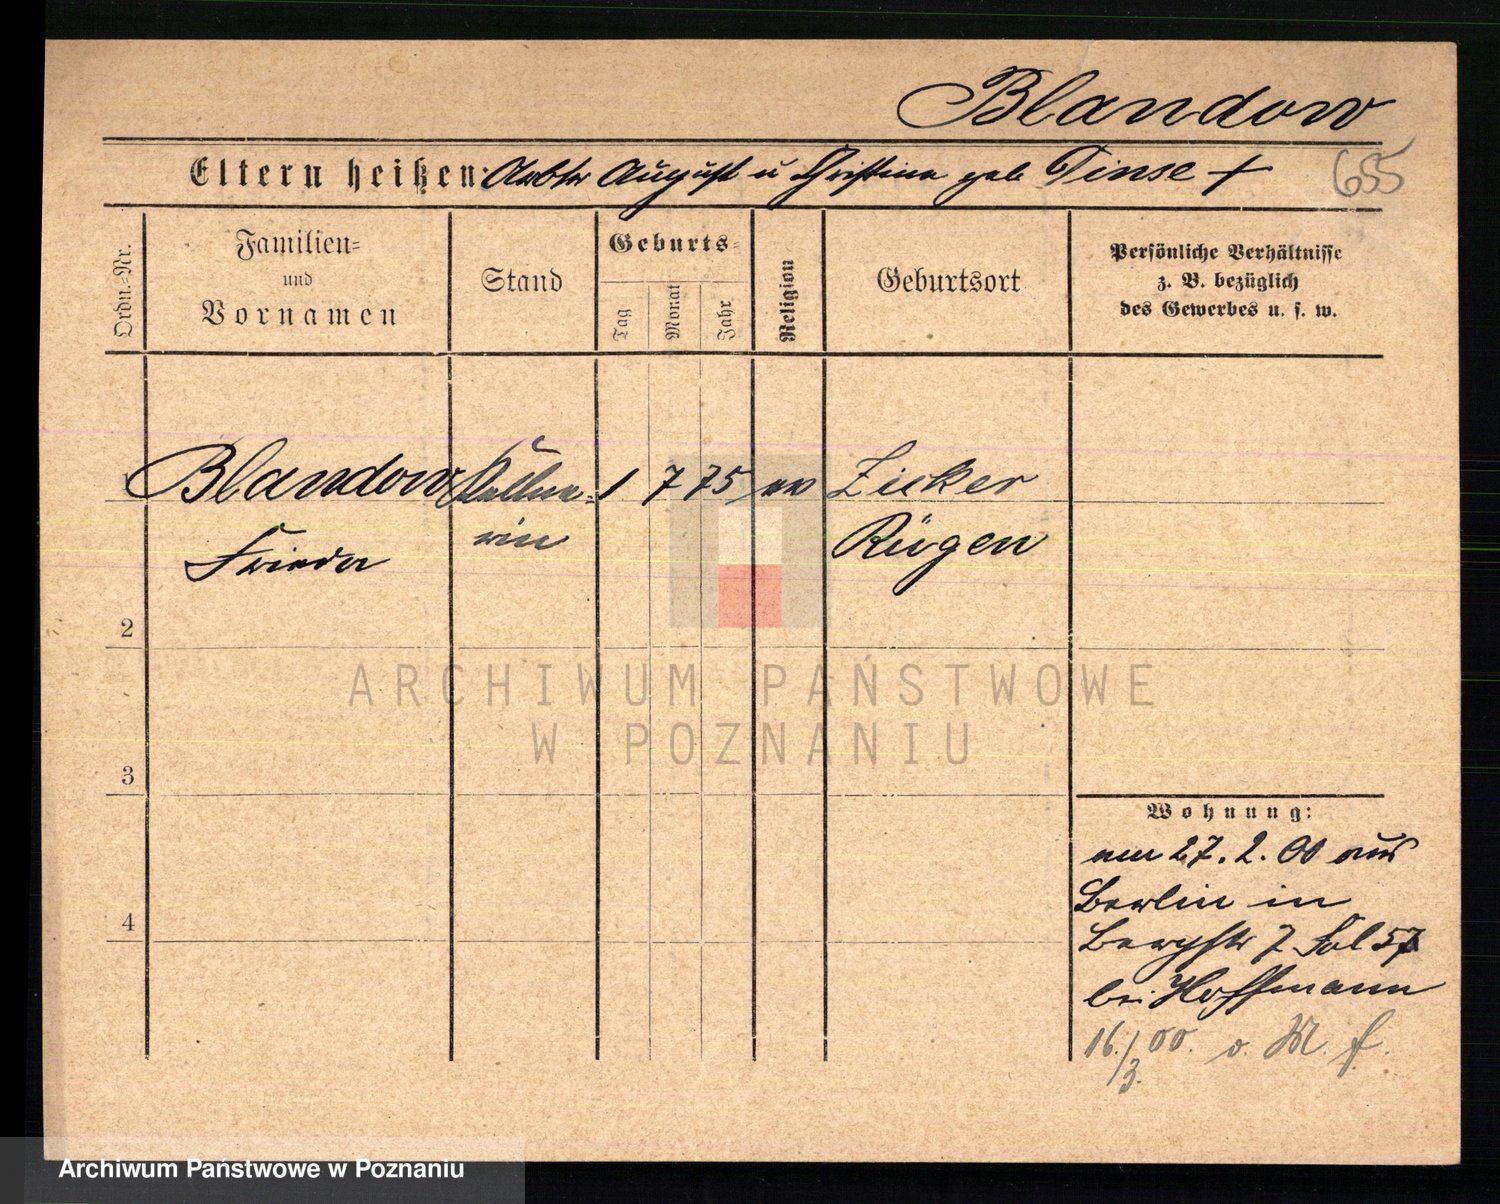 Blandow
Eltern heißen: Arbtr August u Christina geb Tinse +
655
Ordn.-Nr.
Familien-
und
Vornamen
Stand
Geburts-
Tag
Monat
Jahr
Religion
Geburtsort
Persönliche Verhältnisse
z. B. bezüglich
des Gewerbes u. s. w.
Blandow Kellne- 1 7 75 ev Zicker
Frieda rin Rügen
2
3
4
Wohnung:
am 27. 2. 00 aus
Berlin in
Bergstr 7 Fol 57
bei Hoffmann
16./3. 00. o. M. f.
ARCHIWUM PAŃSTWOWE
W POZNANIU
Archiwum Państwowe w Poznaniu